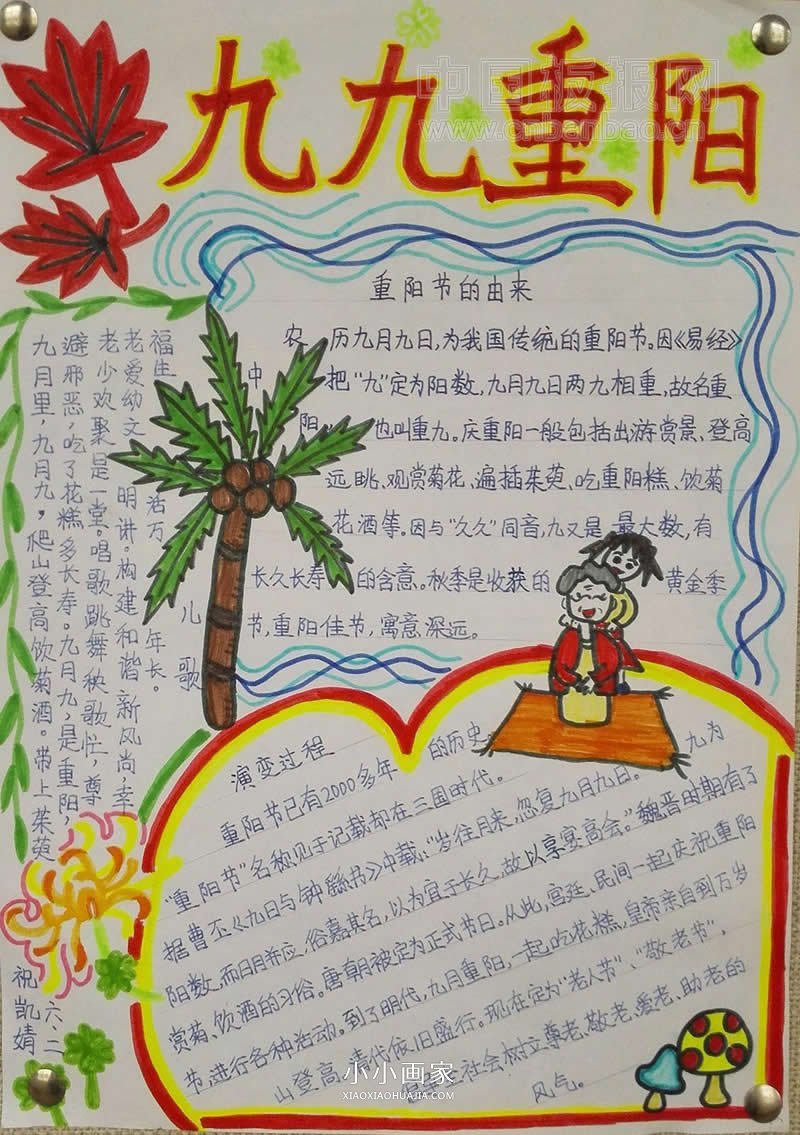 九九重阳
中国板报网
www.cnbanbao.cn
重阳节的由来
农历九月九日,为我国传统的重阳节。因《易经》
中把“九”定为阳数,九月九日两九相重,故名重
阳,也叫重九。庆重阳一般包括出游赏景、登高
远眺、观赏菊花、遍插茱萸、吃重阳糕、饮菊
花酒等。因与“久久”同音,九又是最大数,有
长久长寿的含意。秋季是收获的黄金季
节,重阳佳节,寓意深远。
儿歌
九月里,九月九,爬山登高饮菊酒。带上茱萸
避邪恶,吃了花糕多长寿。九月九,是重阳,
老少欢聚是一堂。唱歌跳舞秧歌忙,尊
老爱幼文明讲。构建和谐新风尚,幸
福生活万年长。
演变过程
重阳节已有2000多年的历史
“重阳节”名称见于记载却在三国时代。
据曹丕《九日与钟繇书》中载:“岁往月来,忽复九月九日。九为
阳数,而日月并应,俗嘉其名,以为宜于长久,故以享宴高会。”魏晋时期有了
赏菊、饮酒的习俗。唐朝被定为正式节日。从此,宫廷、民间一起庆祝重阳
节,进行各种活动。到了明代,九月重阳,一起吃花糕,皇帝亲自到万岁
山登高,清代依旧盛行。现在定为“老人节”、“敬老节”,
社会树立尊老、敬老、爱老、助老的
风气。
六、二
祝凯婧
小小画家
XIAOXIAOHUAJIA.COM